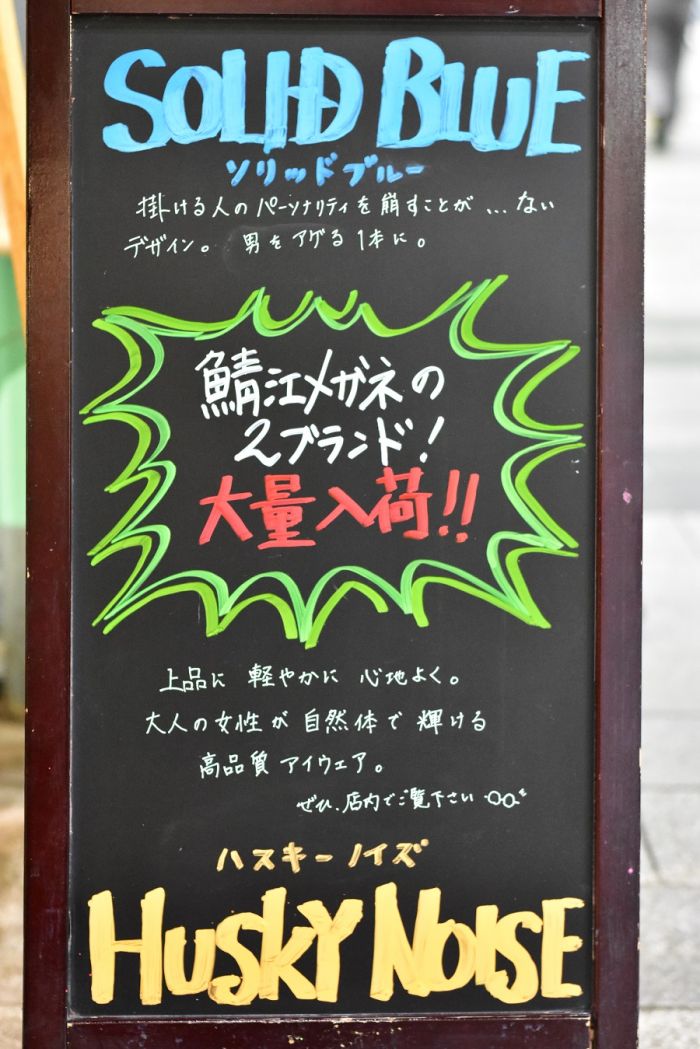 SOLID BLUE
ソリッドブルー
掛ける人のパーソナリティを崩すことが...ない
デザイン。男をアゲる1本に。
鯖江メガネの
2ブランド!
大量入荷!!
上品に 軽やかに 心地よく。
大人の女性が自然体で輝ける
高品質アイウェア。
ぜひ、店内でご覧下さい
ハスキーノイズ
HUSKY NOISE